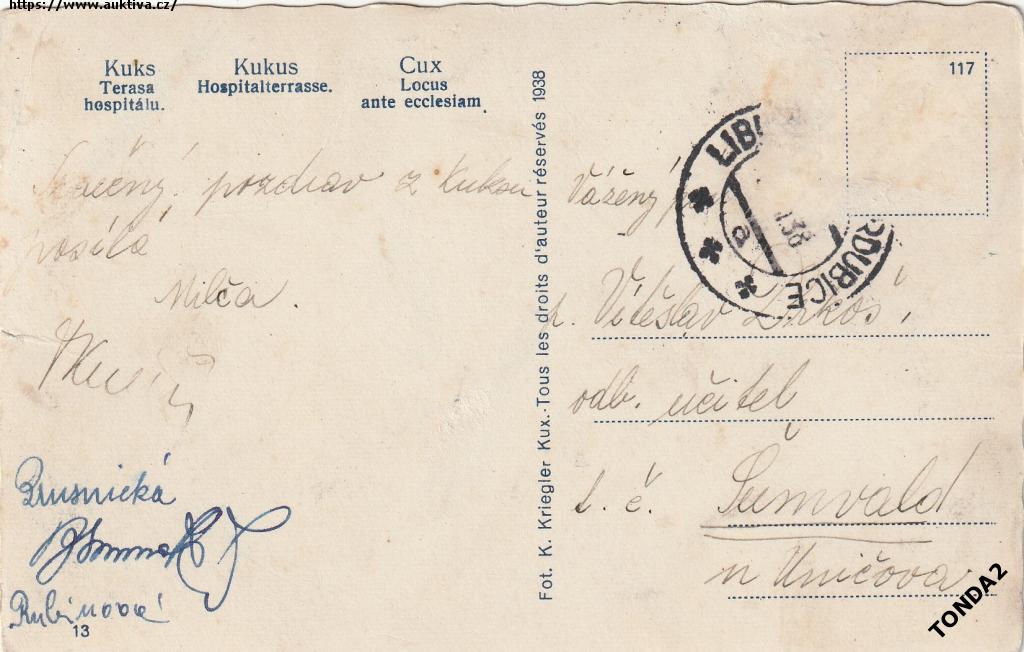 https://www.auktiva.cz/
Kuks
Terasa
hospitálu.
Kukus
Hospitalterrasse.
Cux
Locus
ante ecclesiam.
117
Srdečný pozdrav z Kuksu
posílá
Milča.
Brusnická
Rubínová
13
Fot. K. Kriegler Kux.-Tous les droits d'auteur réservés 1938
LIB
RDUBICE
38
a
Vážený
p. Vítěslav
odb. učitel
t. č. Šumvald
u Uničova
TONDA2